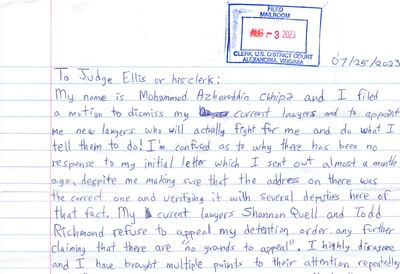 FILED
MAILROOM
AUG - 3 2023
CLERK, U.S. DISTRICT COURT
ALEXANDRIA, VIRGINIA
07/25/2023
To Judge Ellis or his clerk:
My name is Mohammed Azharuddin Chhipa and I filed
a motion to dismiss my current lawyers and to appoint
me new lawyers who will actually fight for me and do what I
tell them to do! I'm confused as to why there has been no
response to my initial letter which I sent out almost a month
ago, despite me making sure that the address on there was
the correct one and verifying it with several deputies here of
that fact. My current lawyers Shannon Quell and Todd
Richmond refuse to appeal my detention order any further
claiming that there are "no grands to appeal". I highly disagree
and I have brought multiple points to their attention repeatedly